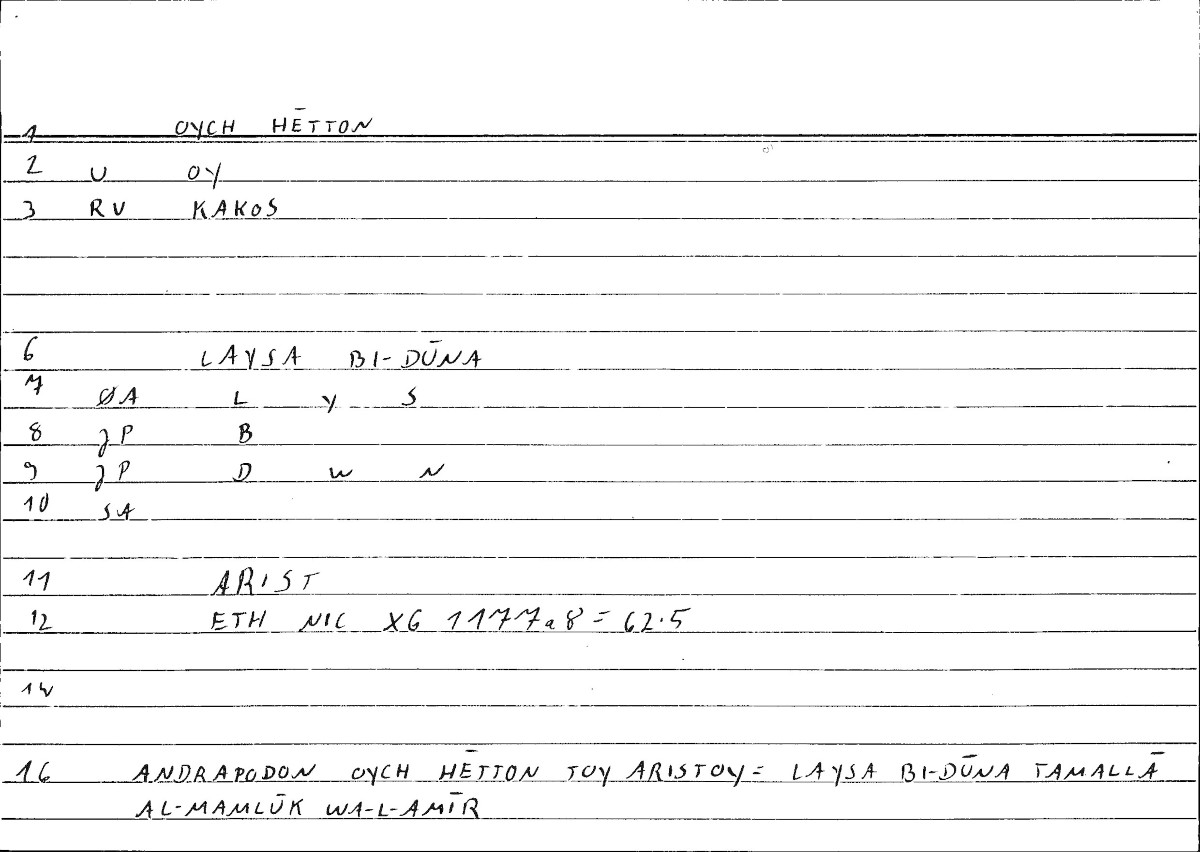 1 OYCH HĒTTON
2 U OY
3 RV KAKOS
6 LAYSA BI-DŪNA
7 ØA L Y S
8 JP B
9 JP D W N
10 SA
11 ARIST
12 ETH NIC X6 1177a8 = 62.5
14
16 ANDRAPODON OYCH HĒTTON TOY ARISTOY = LAYSA BI-DŪNA TAMALLĀ
AL-MAMLŪK WA-L-AMĪR